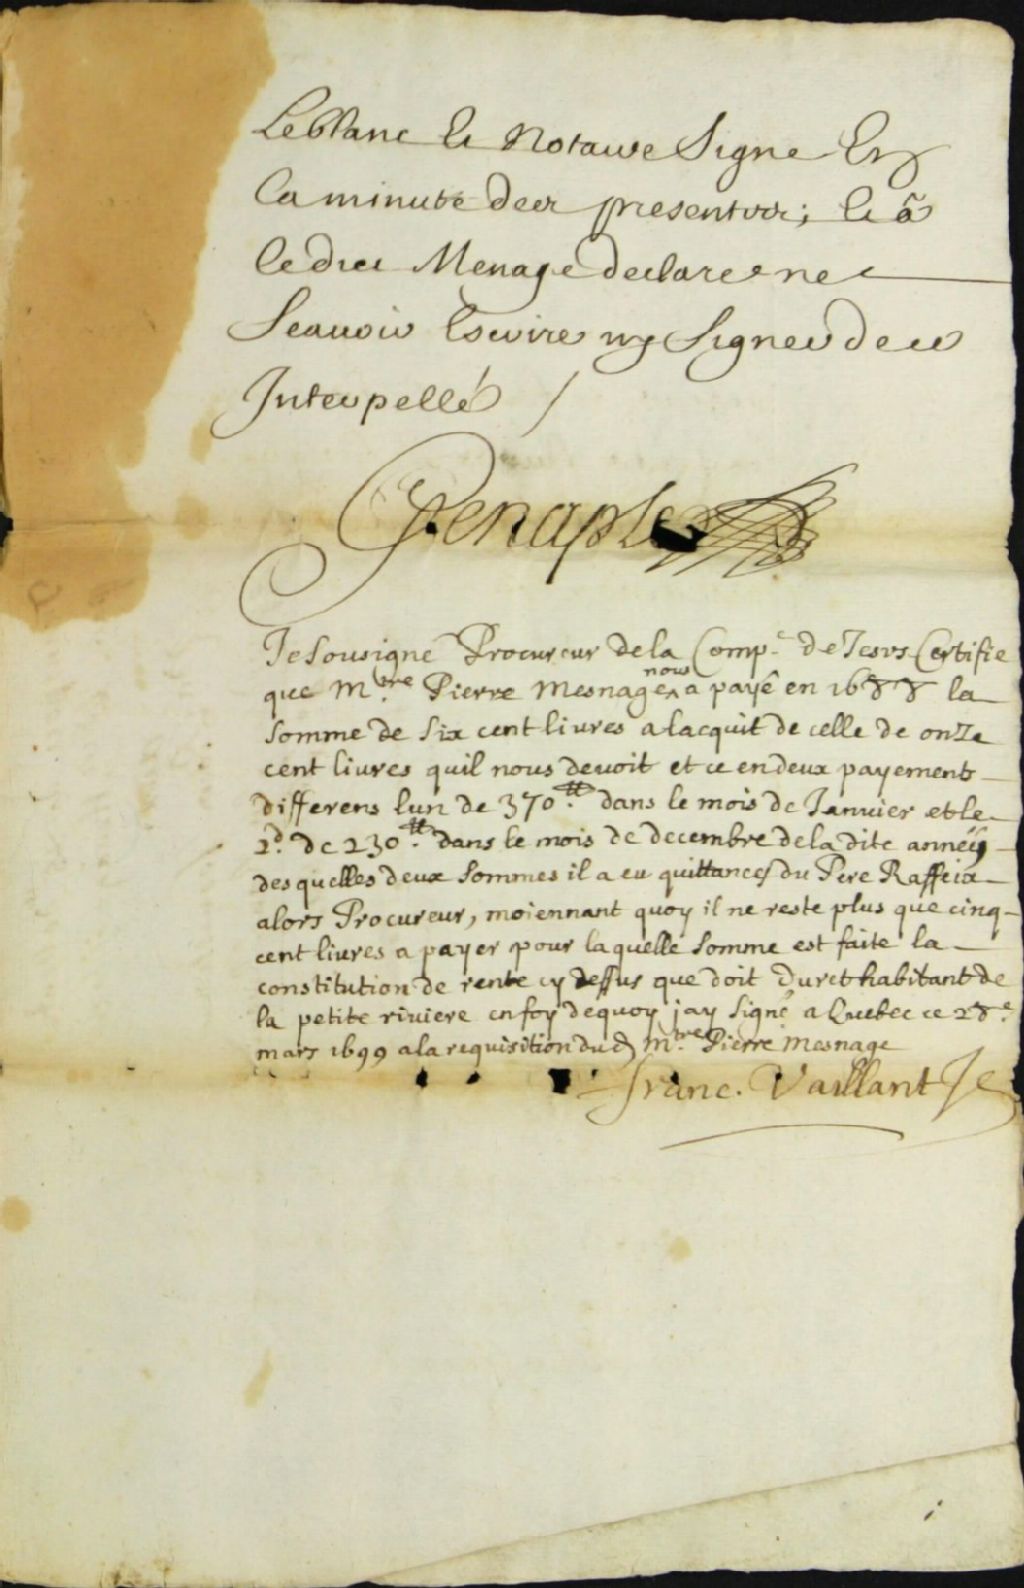 Leblanc le Notaire Signe En
la minute des presentes; et a
ledict Menage declare ne
Scauoir Escrire ny Signer de ce
Interpellé /
Genaple
Je Sousigné Procureur de la Comp.e de Jesus Certifie
que M.tre Pierre Mesnage nous a payé en 1688 la
Somme de Six cent liures a lacquit de celle de onze
cent liures quil nous deuoit et ce en deux payements
differens lun de 370.tt dans le mois de Januier et le
2.d de 230.tt dans le mois de decembre de la dite année
des quelles deux Sommes il a eu quittances du Pere Raffeix
alors Procureur, moiennant quoy il ne reste plus que cinq
cent liures a payer pour laquelle Somme est faite la
constitution de rente cy dessus que doit Duret habitant de
la petite riuiere en foy dequoy jay Signé a Quebec ce 28.e
mars 1699 a la requisition dud M.tre Pierre Mesnage
franc. Vaillant Je